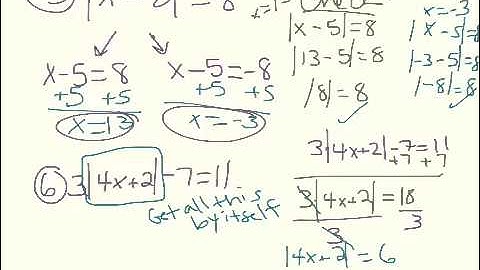 |x-5|=8
x-5=8
+5 +5
x=13
x-5=-8
+5 +5
x=-3
Check
|x-5|=8
|13-5|=8
|8|=8
x=-3
|x-5|=8
|-3-5|=8
|-8|=8
6 3|4x+2|-7=11.
Get all this
by itself
3|4x+2|-7=11
+7 +7
3|4x+2|=18
3 3
|4x+2|=6